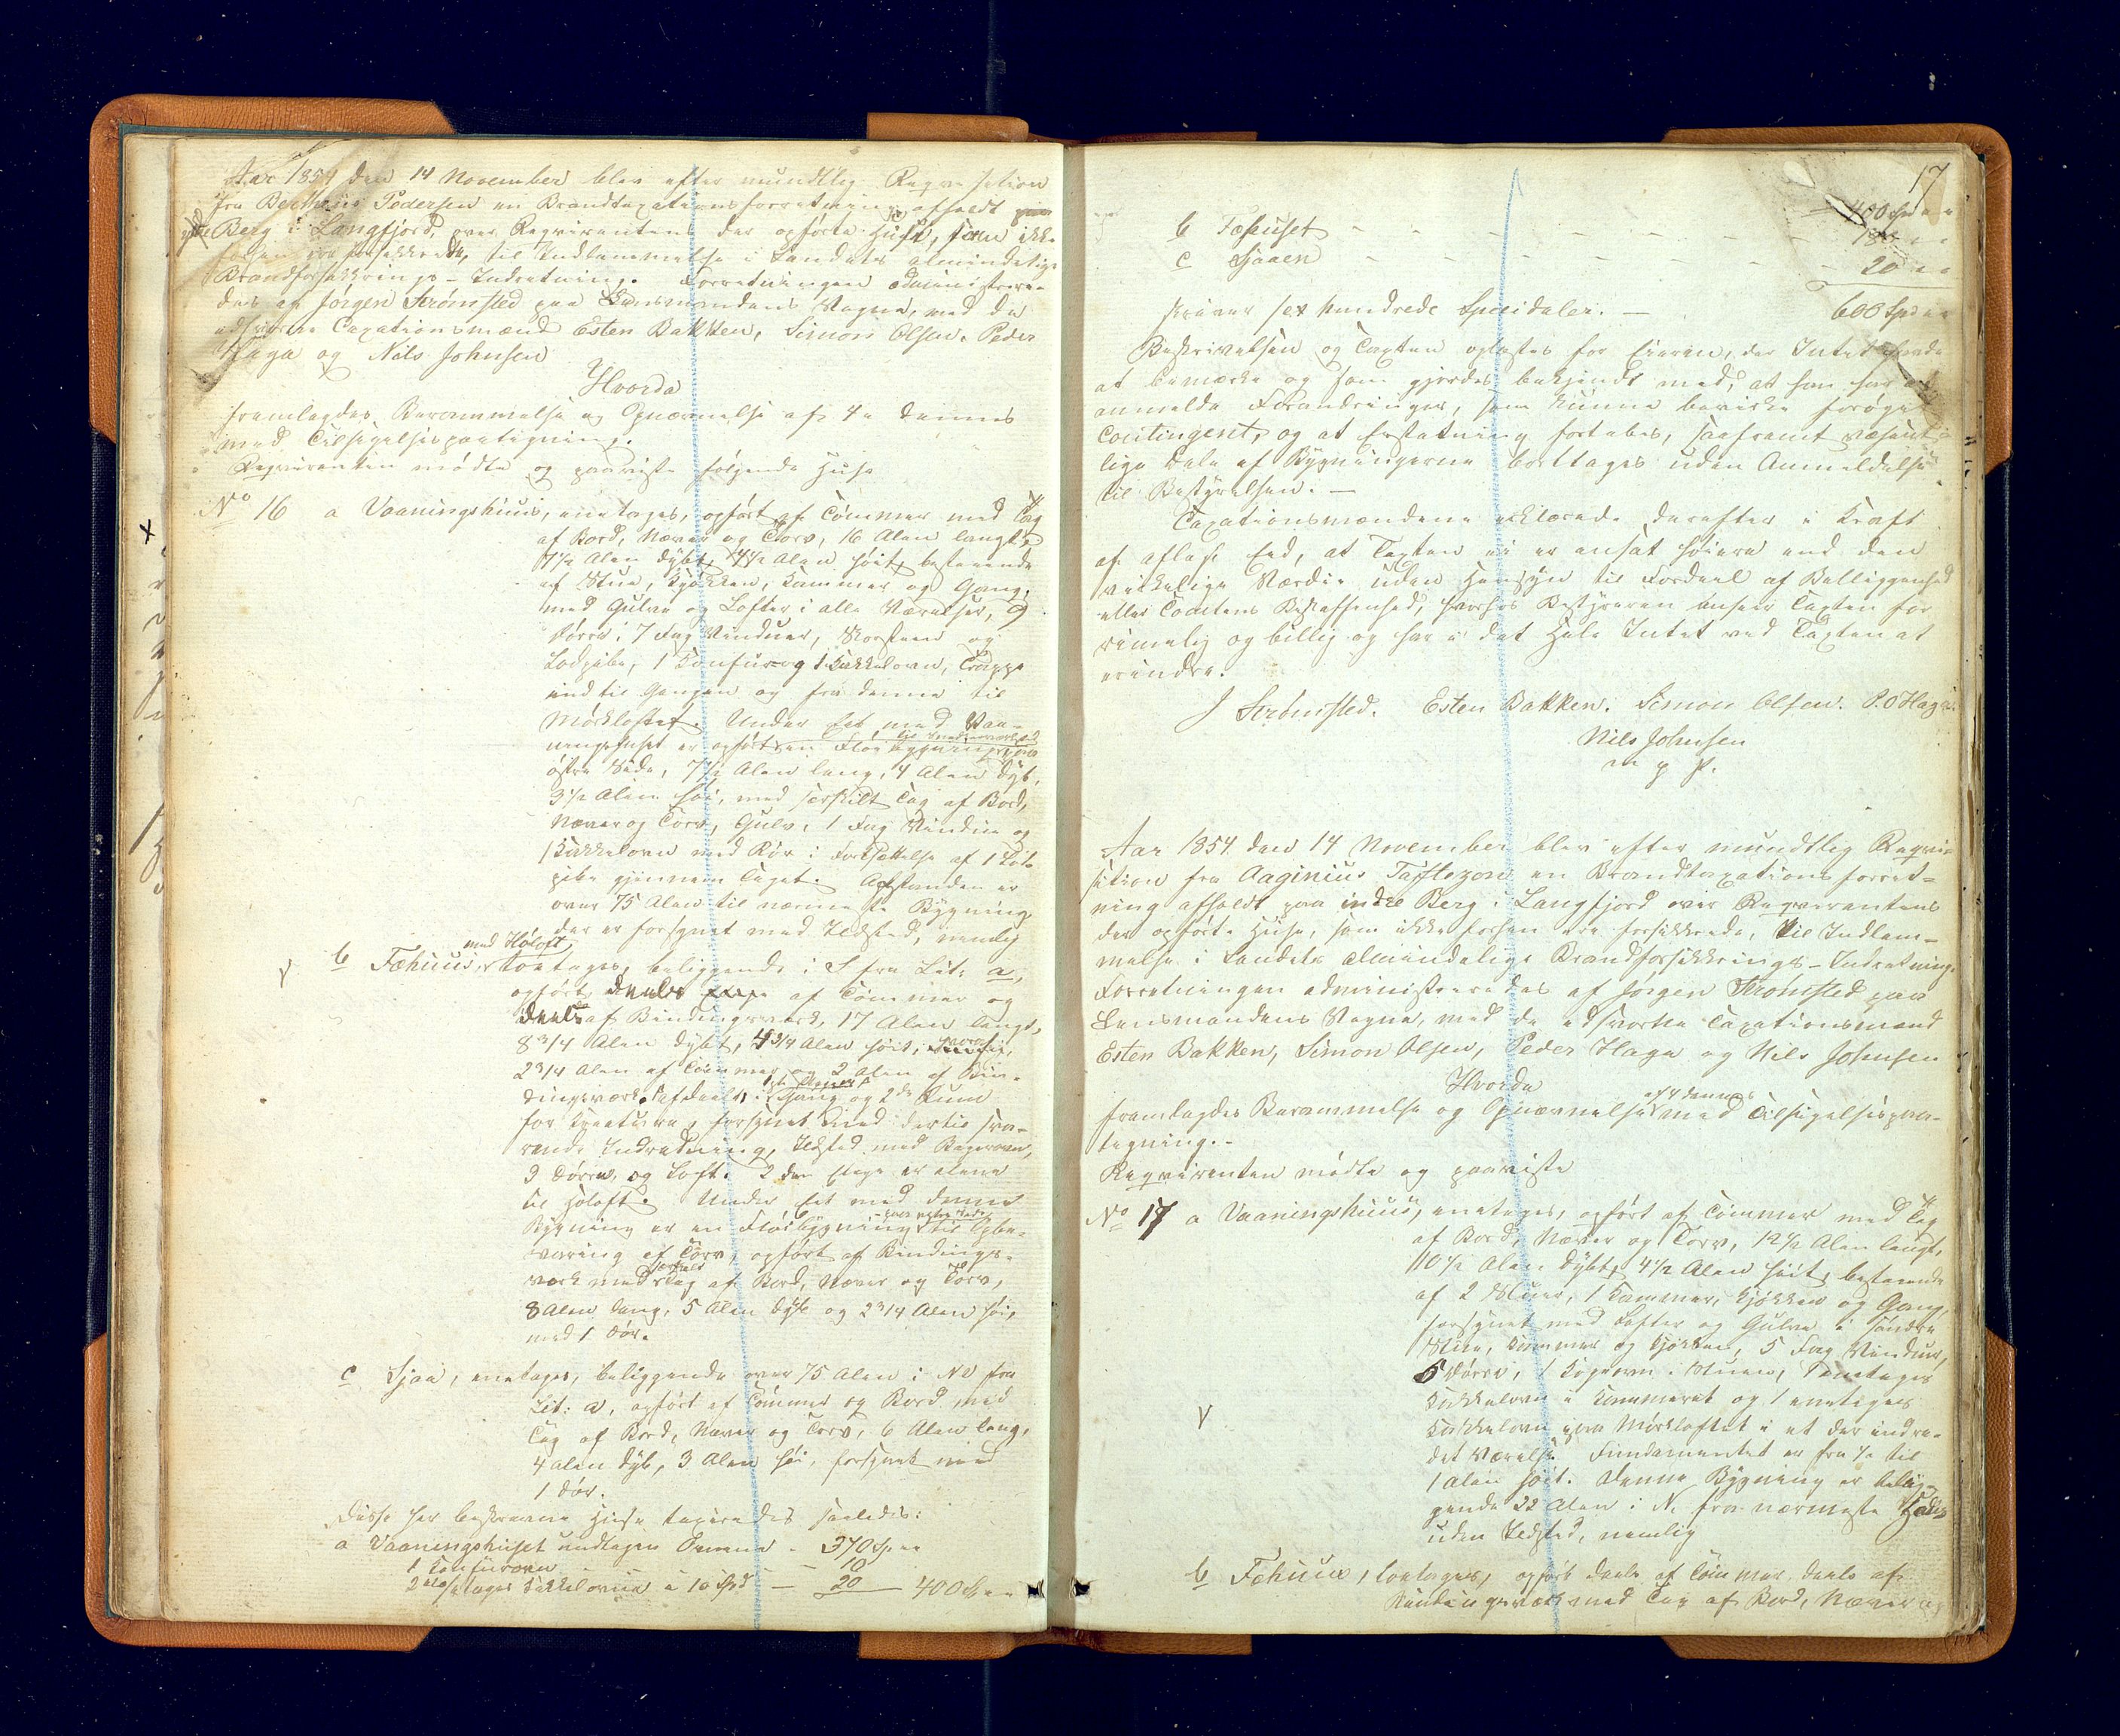 Aar 1854 den 14 November blev efter mundtlig Reqvisition
fra Berthius Pedersen en Brandtaxationsforretning afholdt
ytre Berg i Langfjord, over Reqvirentens der opførte Huse, som ikke
forhen ere forsikkrede, til Indlemmelse i Landets almindelige
Brandforsikkrings-Indretning. Forretningen administrere-
des af Jørgen Strømsted paa Lensmandens Vegne, med de
edsvorne Taxationsmænd Esten Bakken, Simon Olsen, Peder
Haga og Nils Johnsen
Hvorda
fremlagdes Berammelse og Opnævnelse af 4e dennes
med Tilsigelsespaategning.
Reqvirenten mødte og paaviste følgende Huse
No 16 a Vaaningshuus, enetages, opført af Tømmer med Tag
af Bord, Næver og Torv, 16 Alen langt,
7 1/2 Alen dybt, 4 1/2 Alen høit, bestaaende
af Stue, Kjøkken, Kammer og Gang,
med Gulve og Lofter i alle Værelser, 9
Dørre, 7 Fag Vinduer, Skorsteen og
Lodpibe, 1 Komfur og 1 Kakkelovn, Trappe
ind til Gangen og fra denne til
Mørkloftet. Under Eet med Vaa-
ningshuset er opført en Fløibygning paa
østre Side, 7 1/2 Alen lang, 4 Alen dyb,
3 1/2 Alen høi, med særskilt Tag af Bord,
Næver og Torv, Gulv, 1 Fag Vindue og
1 Kakkelovn med Rør i Fortsættelse af 1 Lod-
pibe gjennem Taget. Afstanden er
over 75 Alen til nærmeste Bygning
der er forsynet med Ildsted, nemlig
med Høloft
b Fæhuus, toetages, beliggende i S fra Lit: a,
opført deels af Tømmer og
deels af Bindingsværk, 17 Alen langt,
8 3/4 Alen dybt, 4 3/4 Alen høit, hvoraf
2 3/4 Alen af Tømmer og 2 Alen af Bin-
dingsværk, afdeelt i Gang og 2de Rum
for Kreature, forsynet med dertil sva-
rende Indredning, Ildsted med Bagerovn,
9 Dørre, og Loft. 2den Etage er alene
til Høloft. Under Eet med denne
paa østre Side
Bygning er en Fløibygning til Opbe-
varing af Torv, opført af Bindings-
særskilt
værk med Tag af Bord, Næver og Torv,
8 Alen lang, 5 Alen dyb og 2 3/4 Alen høi,
med 1 Dør.
c Sjaa, enetages, beliggende over 75 Alen i NV fra
Lit: a, opført af Tømmer og Bord med
Tag af Bord, Næver og Torv, 6 Alen lang,
4 Alen dyb, 3 Alen høi, forsynet med
1 Dør.
Disse her beskrevne Huse taxeredes saaledes:
a Vaaningshuset undtagen Ovnene - 370 Spd
1 Komfurovn - 10
2 etages Kakkelovne à 10 Spd - 20 400 Spd
17
400 Spd
b Fæhuset - - - 180
c Sjaaen - - - 20
600 Spd
skriver sex hundrede Speidaler. -
Beskrivelsen og Taxten oplæstes for Eieren, der Intet havde
at bemærke og som gjordes bekjendt med, at han har at
anmelde Forandringer, som kunne bevirke forøget
Contingent, og at Erstatning fortabes, saafremt væsent-
lige Dele af Bygningerne borttages uden Anmeldelse
til Bestyrelsen. -
Taxationsmændene erklærede derefter i Kraft
af aflagt Eed, at Taxten ei er ansat høiere end den
virkelige Værdie uden Hensyn til Fordeel af Beliggenhed
eller Tomtens Beskaffenhed, hvorhos Bestyreren anseer Taxten for
rimelig og billig og har i det Hele Intet ved Taxten at
erindre.
J Strømsted. Esten Bakken. Simon Olsen. P. O Haga.
Nils Johnsen
m p P.
Aar 1854 den 14 November blev efter mundtlig Reqvi-
sition fra Aaginius Tøftezon en Brandtaxationsforret-
ning afholdt paa indre Berg i Langfjord over Reqvirentens
der opførte Huse, som ikke forhen ere forsikkrede, til Indlem-
melse i Landets almindelige Brandforsikkrings-Indretning.
Forretningen administreredes af Jørgen Strømsted paa
Lensmandens Vegne, med de edsvorne Taxationsmænd
Esten Bakken, Simon Olsen, Peder Haga og Nils Johnsen
Hvorda
af 4 dennes
fremlagdes Berammelse og Opnævnelse med Tilsigelsespaa-
tegning. -
Reqvirenten mødte og paaviste
No 17 a Vaaningshuus, enetages, opført af Tømmer med Tag
af Bord, Næver og Torv, 12 1/2 Alen langt,
10 1/2 Alen dybt, 4 1/2 Alen høit, bestaaende
af 2 Stuer, 1 Kammer, Kjøkken og Gang,
forsynet med Lofter og Gulve i søndre
Stue, Kammer og Kjøkken, 5 Fag Vinduer,
5 Dørre, 1 Kogeovn i Stuen, 1 enetages
Kakkelovn i Kammeret og 1 enetages
Kakkelovn paa Mørkloftet i et der indre-
det Værelse. Fundamentet er fra 1/2 til
1 Alen høit. Denne Bygning er belig-
gende 22 Alen i N. fra nærmeste Huus
uden Ildsted, nemlig
b Fæhuus, toetages, opført deels af Tømmer deels af
Bindingsværk med Tag af Bord, Næver og